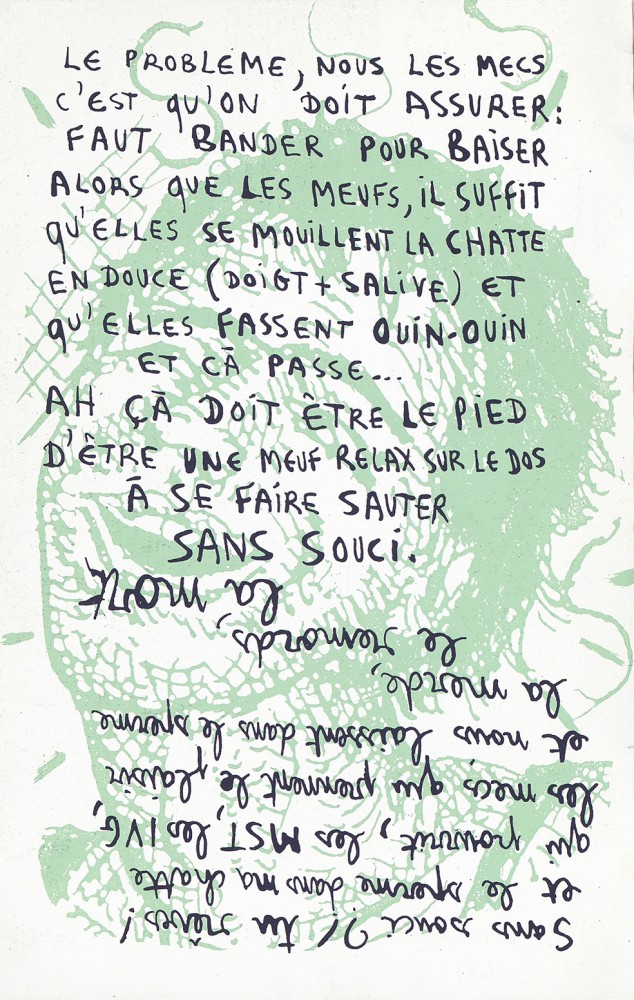 LE PROBLEME, NOUS LES MECS
C'EST QU'ON DOIT ASSURER:
FAUT BANDER POUR BAISER
ALORS QUE LES MEUFS, IL SUFFIT
QU'ELLES SE MOUILLENT LA CHATTE
EN DOUCE (DOIGT + SALIVE) ET
QU'ELLES FASSENT OUIN-OUIN
ET CĀ PASSE...
AH ÇĀ DOIT ÊTRE LE PIED
D'ÊTRE UNE MEUF RELAX SUR LE DOS
Ā SE FAIRE SAUTER
SANS SOUCI.
Sans souci?! tu rêves!
et le sperme dans ma chatte
qui pourrit, les MST, les IVG,
les mecs qui prennent le plaisir
et nous laissent dans le sperme
la merde,
le remords,
la mort